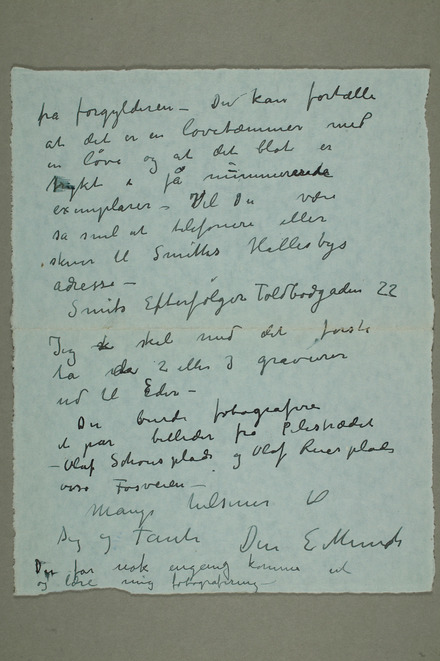 fra forgylderen – Du kan fortælle
at det er en løvetæmmer med
en løve og at det blot er
trykt i få nummererede
eksemplarer – Vil Du være
så snil at telefonere eller
skrive til Smiths Hallesbys
adresse –
Smits Efterfølger Toldbodgaden 22
Jeg skal med det første
ta 2 eller 3 gravurer
ud til Eder –
Du burde fotografere
et par billeder fra Pilestrædet
– Olaf Schous plads og Olaf Ryes plads
Mange hilsener til
Dig og Tante Din E Munch
Du får nok engang komme ud
og lære mig fotografering –